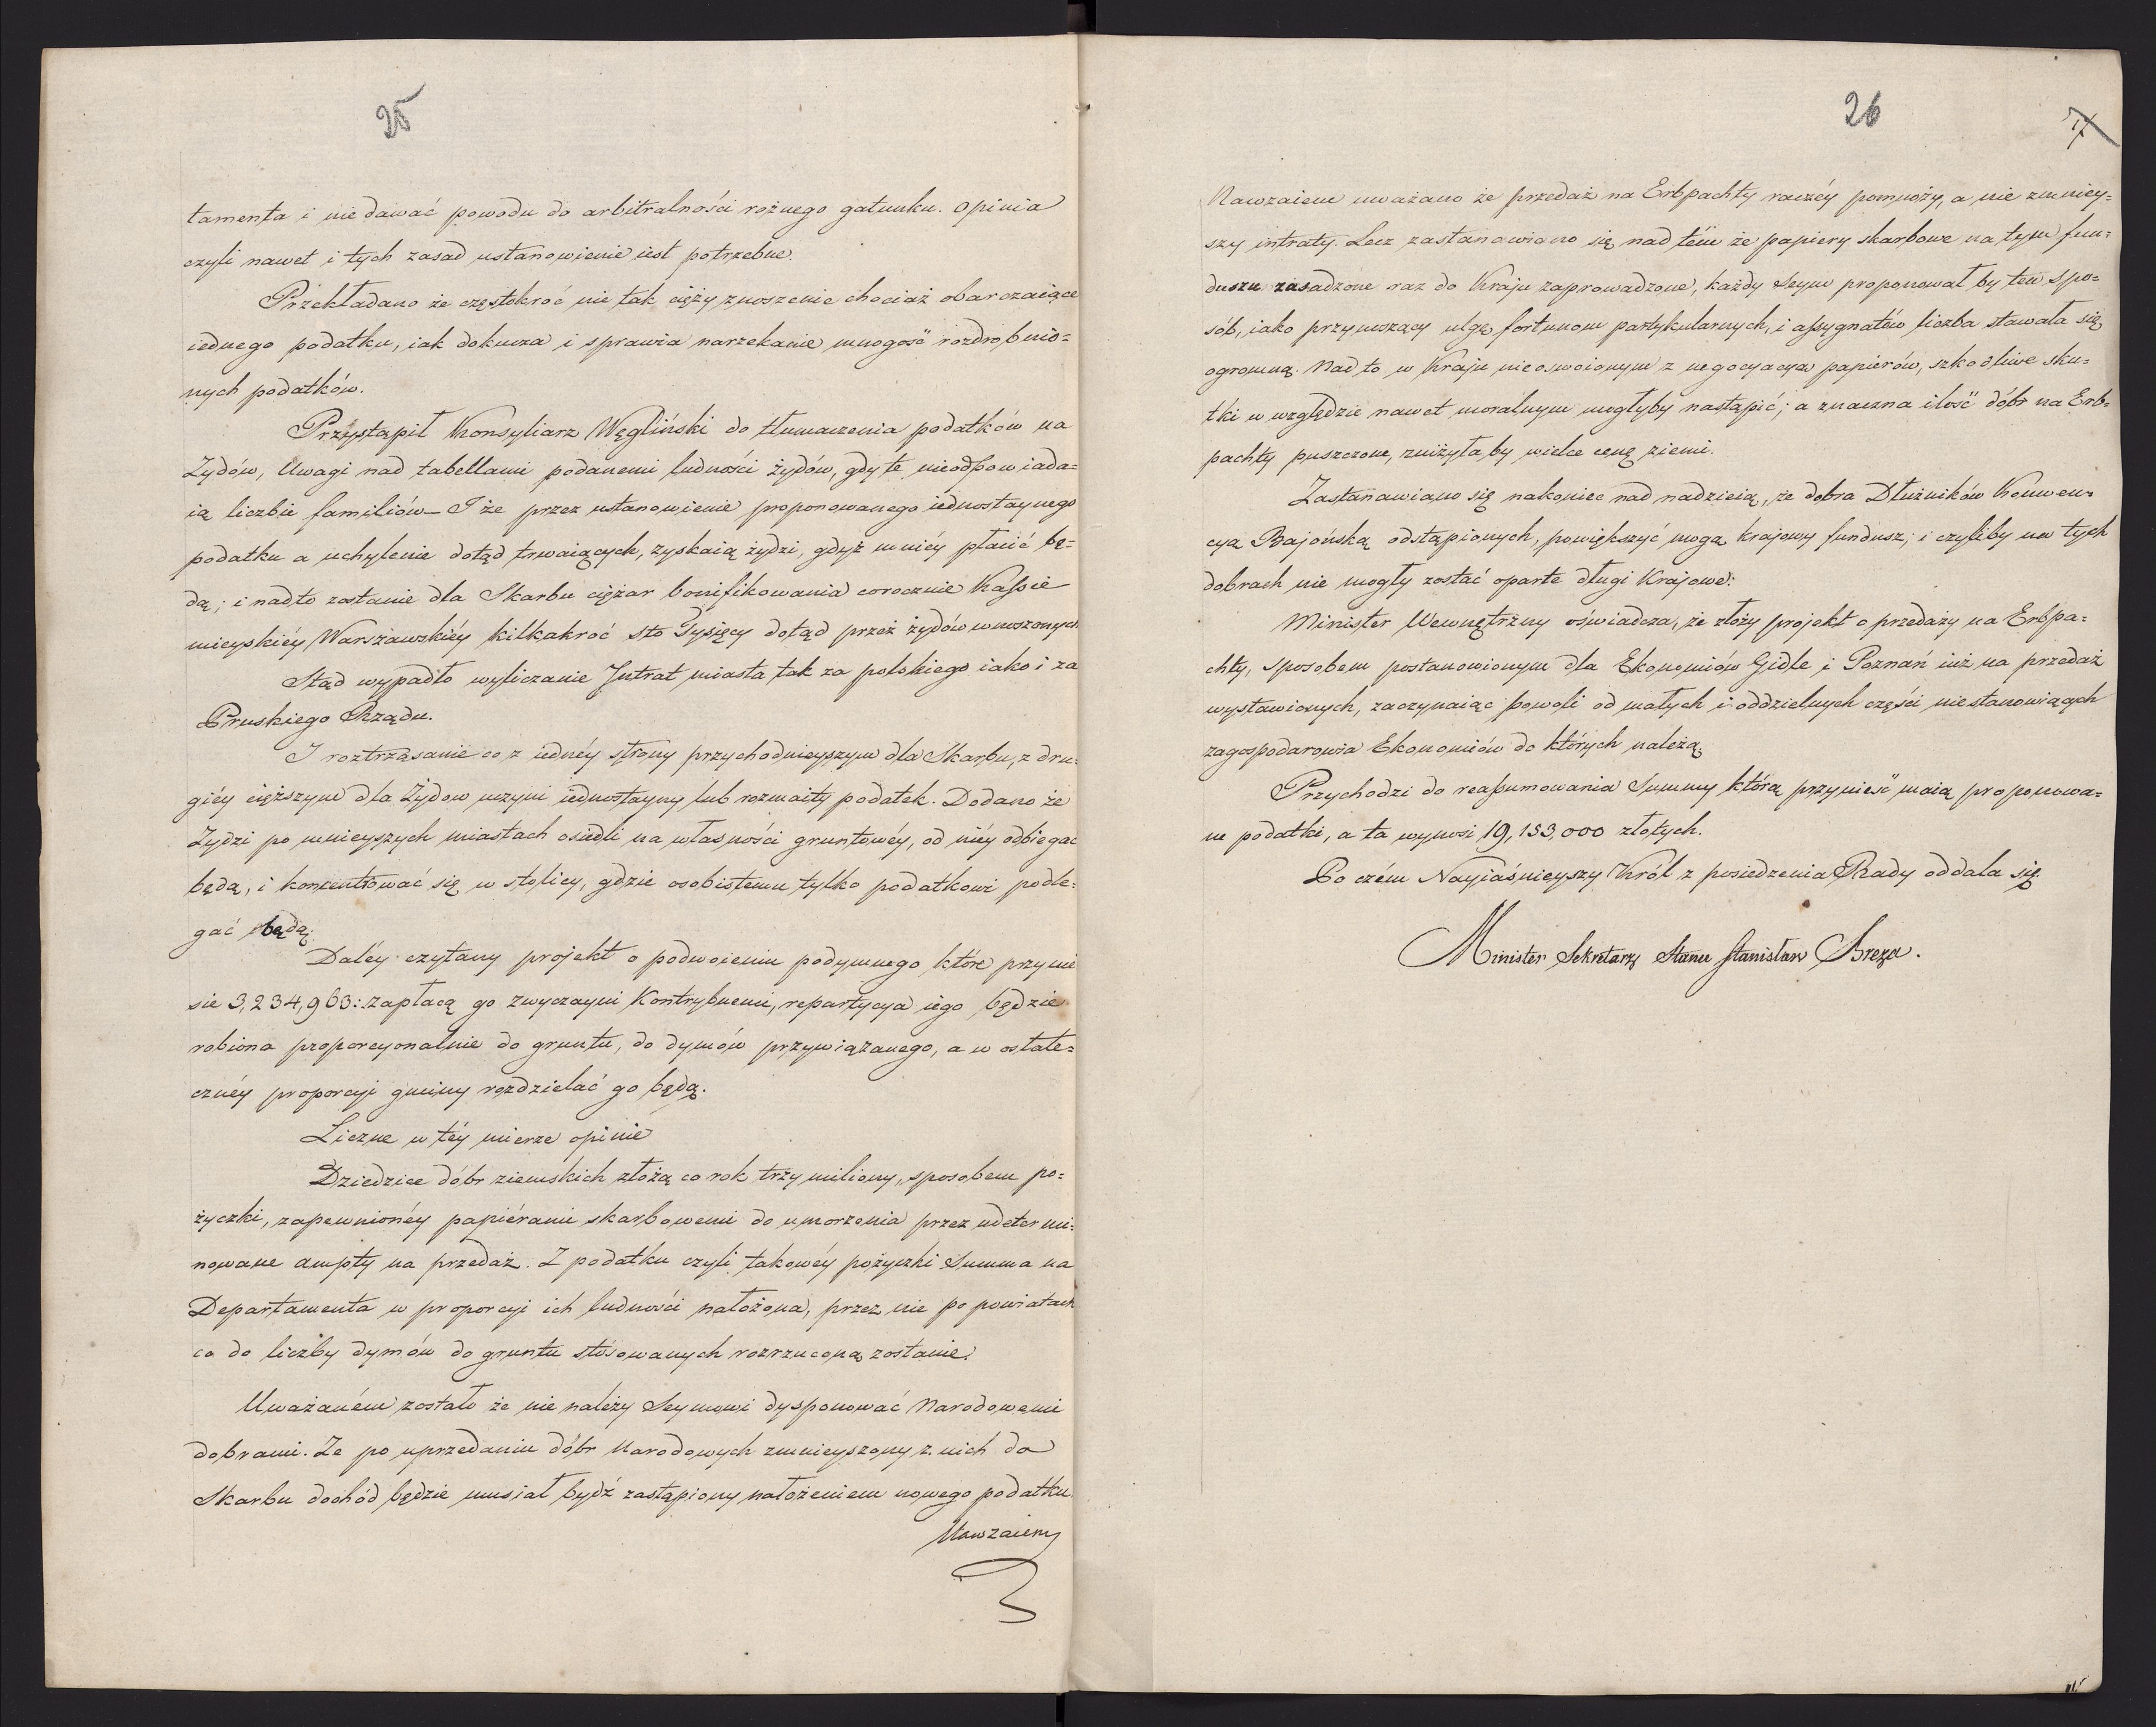 25
tamenta i nie dawać powodu do arbitralności rożnego gatunku. opinia
czyli nawet i tych zasad ustanowienie iest potrzebne.
Przekładano że częstokroć nie tak cięży znoszenie chociaż obarczaiące
iednego podatku, iak dokucza i sprawia narzekanie mnogość rozdrobnio=
nych podatków.
Przystąpił Konsyliarz Węgliński do tłumaczenia podatków na
Żydów, Uwagi nad tabellami podanemi ludności żydów, gdy te nieodpowiada=
ią liczbie familiów— I że przez ustanowienie proponowanego iednostaynego
podatku a uchylenie dotąd trwaiących, zyskaią żydzi, gdyż mniéy płacić bę=
dą; i nadto zostanie dla Skarbu ciężar bonifikowania corocznie Kassie
mieyskiéy Warszawskiéy kilkakroć sto Tysięcy dotąd przez żydów wnoszonych
Stąd wypadło wyliczanie Intrat miasta tak za polskiego iako i za
Pruskiego Rządu.
I roztrząsanie co z iednéy strony przychodnieyszym dla Skarbu, z dru=
giéy cięższym dla Żydow uczyni iednostayny lub rozmaity podatek. Dodano że
Żydzi po mnieyszych miastach osiedli na własności gruntowéy, od niéy odbiegac
będą, i koncentrować się w stolicy, gdzie osobistemu tylko podatkowi podle=
gać będą;
Daléy czytany projekt o podwoieniu podymnego które przynie
sie 3,234,963: zapłacą go zwyczayni Kontrybuenci, repartycya iego będzie
robiona proporcyonalnie do gruntu, do dymów przywiązanego, a w ostate=
cznéy proporcyi gminy rozdzielać go będą.
Liczne w téy mierze opinie
Dziedzice dóbr ziemskich złożą co rok trzy miliony, sposobem po=
życzki, zapewnionéy papiérami skarbowemi do umorzenia przez udetermi=
nowane ampty na przedaż. Z podatku czyli takowéy pożyczki Summa na
Departamenta w proporcyi ich ludności nałożona, przez nie po powiatach
co do liczby dymów do gruntu stósowanych rozrzuconą zostanie.
Uważaném zostało że nie należy Seymowi dysponować Narodowemi
dobrami. Że po uprzedaniu dóbr Narodowych zmnieyszony z nich do
Skarbu dochód będzie musiał bydź zastąpiony nałożeniem nowego podatku.
Nawzaiem
26
17
Nawzaiem uważano że przedaż na Erbpachty raczéy pomnoży, a nie zmniey=
szy intraty. Lecz zastanowiono się nad tém że papiery skarbowe na tym fun=
duszu zasadzone raz do Kraju zaprowadzone, każdy Seym proponował by ten spo=
sób, iako przynoszący ulgę fortunom partykularnych, i assygnatów liczba stawała się
ogromną. Nad to w Kraju nieoswoionym z negocyacyą papierów, szkodliwe sku=
tki w względzie nawet moralnym mogłyby nastąpić; a znaczna ilość dóbr na Erb=
pachty puszczone, zniżyła by wielce cenę ziemi.
Zastanawiano się nakoniec nad nadzieią, że dobra Dłużników Konwen=
cyą Bajońską odstąpionych, powiększyć mogą krajowy fundusz, i czyliby na tych
dobrach nie mogły zostać oparte długi Krajowe:
Minister Wewnętrzny oświadcza, że złoży projekt o przedaży na Erbpa=
chty, sposobem postanowionym dla Ekonomiów Gidle i Poznań iuż na przedaż
wystawionych, zaczynaiąc powoli od małych i oddzielnych części niestanowiących
zagospodarowia Ekonomiów do których należą.
Przychodzi do reassumowania Summy którą przynieść maią proponowa=
ne podatki, a ta wynosi 19,153,000 złotych.
Po czém Nayiaśnieyszy Król z posiedzenia Rady oddala się.
Minister Sekretarz Stanu Stanisław Breza.